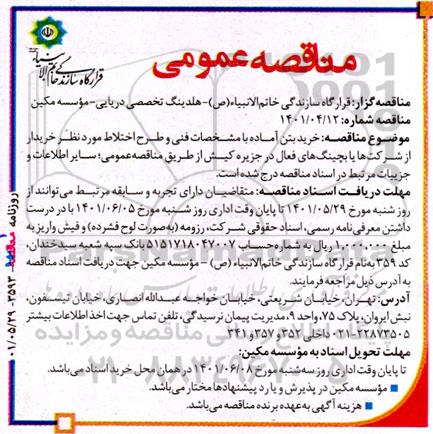 قرارگاه سازندگی خاتم الانبیاء
مناقصه عمومی
مناقصه‌گزار: قرارگاه سازندگی خاتم‌الانبیاء(ص)-هلدینگ تخصصی دریایی-مؤسسه مکین
مناقصه شماره: ۱۴۰۱/۰۴/۱۲
موضوع مناقصه: خرید بتن آماده با مشخصات فنی و طرح اختلاط مورد نظر خریدار
از شرکت‌ها یا بچینگ‌های فعال در جزیره کیش از طریق مناقصه عمومی؛ سایر اطلاعات و
جزییات مرتبط در اسناد مناقصه درج شده است.
مهلت دریافت اسناد مناقصه: متقاضیان دارای تجربه و سابقه مرتبط می‌توانند از
روز شنبه مورخ ۱۴۰۱/۰۵/۲۹ تا پایان وقت اداری روز شنبه مورخ ۱۴۰۱/۰۶/۰۵ با در دست
داشتن معرفی‌نامه رسمی، اسناد حقوقی شرکت، رزومه (به‌صورت لوح فشرده) و فیش واریز به
مبلغ ۱,۰۰۰,۰۰۰ ریال به شماره حساب ۵۱۵۱۷۱۸۰۴۷۰۰۷ بانک سپه شعبه سیدخندان،
کد ۳۵۹ به‌نام قرارگاه سازندگی خاتم‌الانبیاء (ص) -مؤسسه مکین جهت دریافت اسناد مناقصه
به آدرس ذیل مراجعه فرمایند.
آدرس: تهران، خیابان شریعتی، خیابان خواجه عبدالله انصاری، خیابان تیسفون،
نبش ایروان، پلاک ۷۵، واحد ۹، مدیریت پیمان رسیدگی، تلفن تماس جهت اخذ اطلاعات بیشتر
۰۲۱-۲۲۸۷۳۵۰۵ داخلی ۳۵۲، ۳۵۷ و ۳۴۱
مهلت تحویل اسناد به مؤسسه مکین:
تا پایان وقت اداری روز سه‌شنبه مورخ ۱۴۰۱/۰۶/۰۸ در همان محل خرید اسناد می‌باشد.
■ مؤسسه مکین در پذیرش و یا رد پیشنهادها مختار می‌باشد.
■ هزینه آگهی به‌عهده برنده مناقصه می‌باشد.
روزنامه مناقصه ۳۵۹۳ - ۰۱/۰۵/۲۹